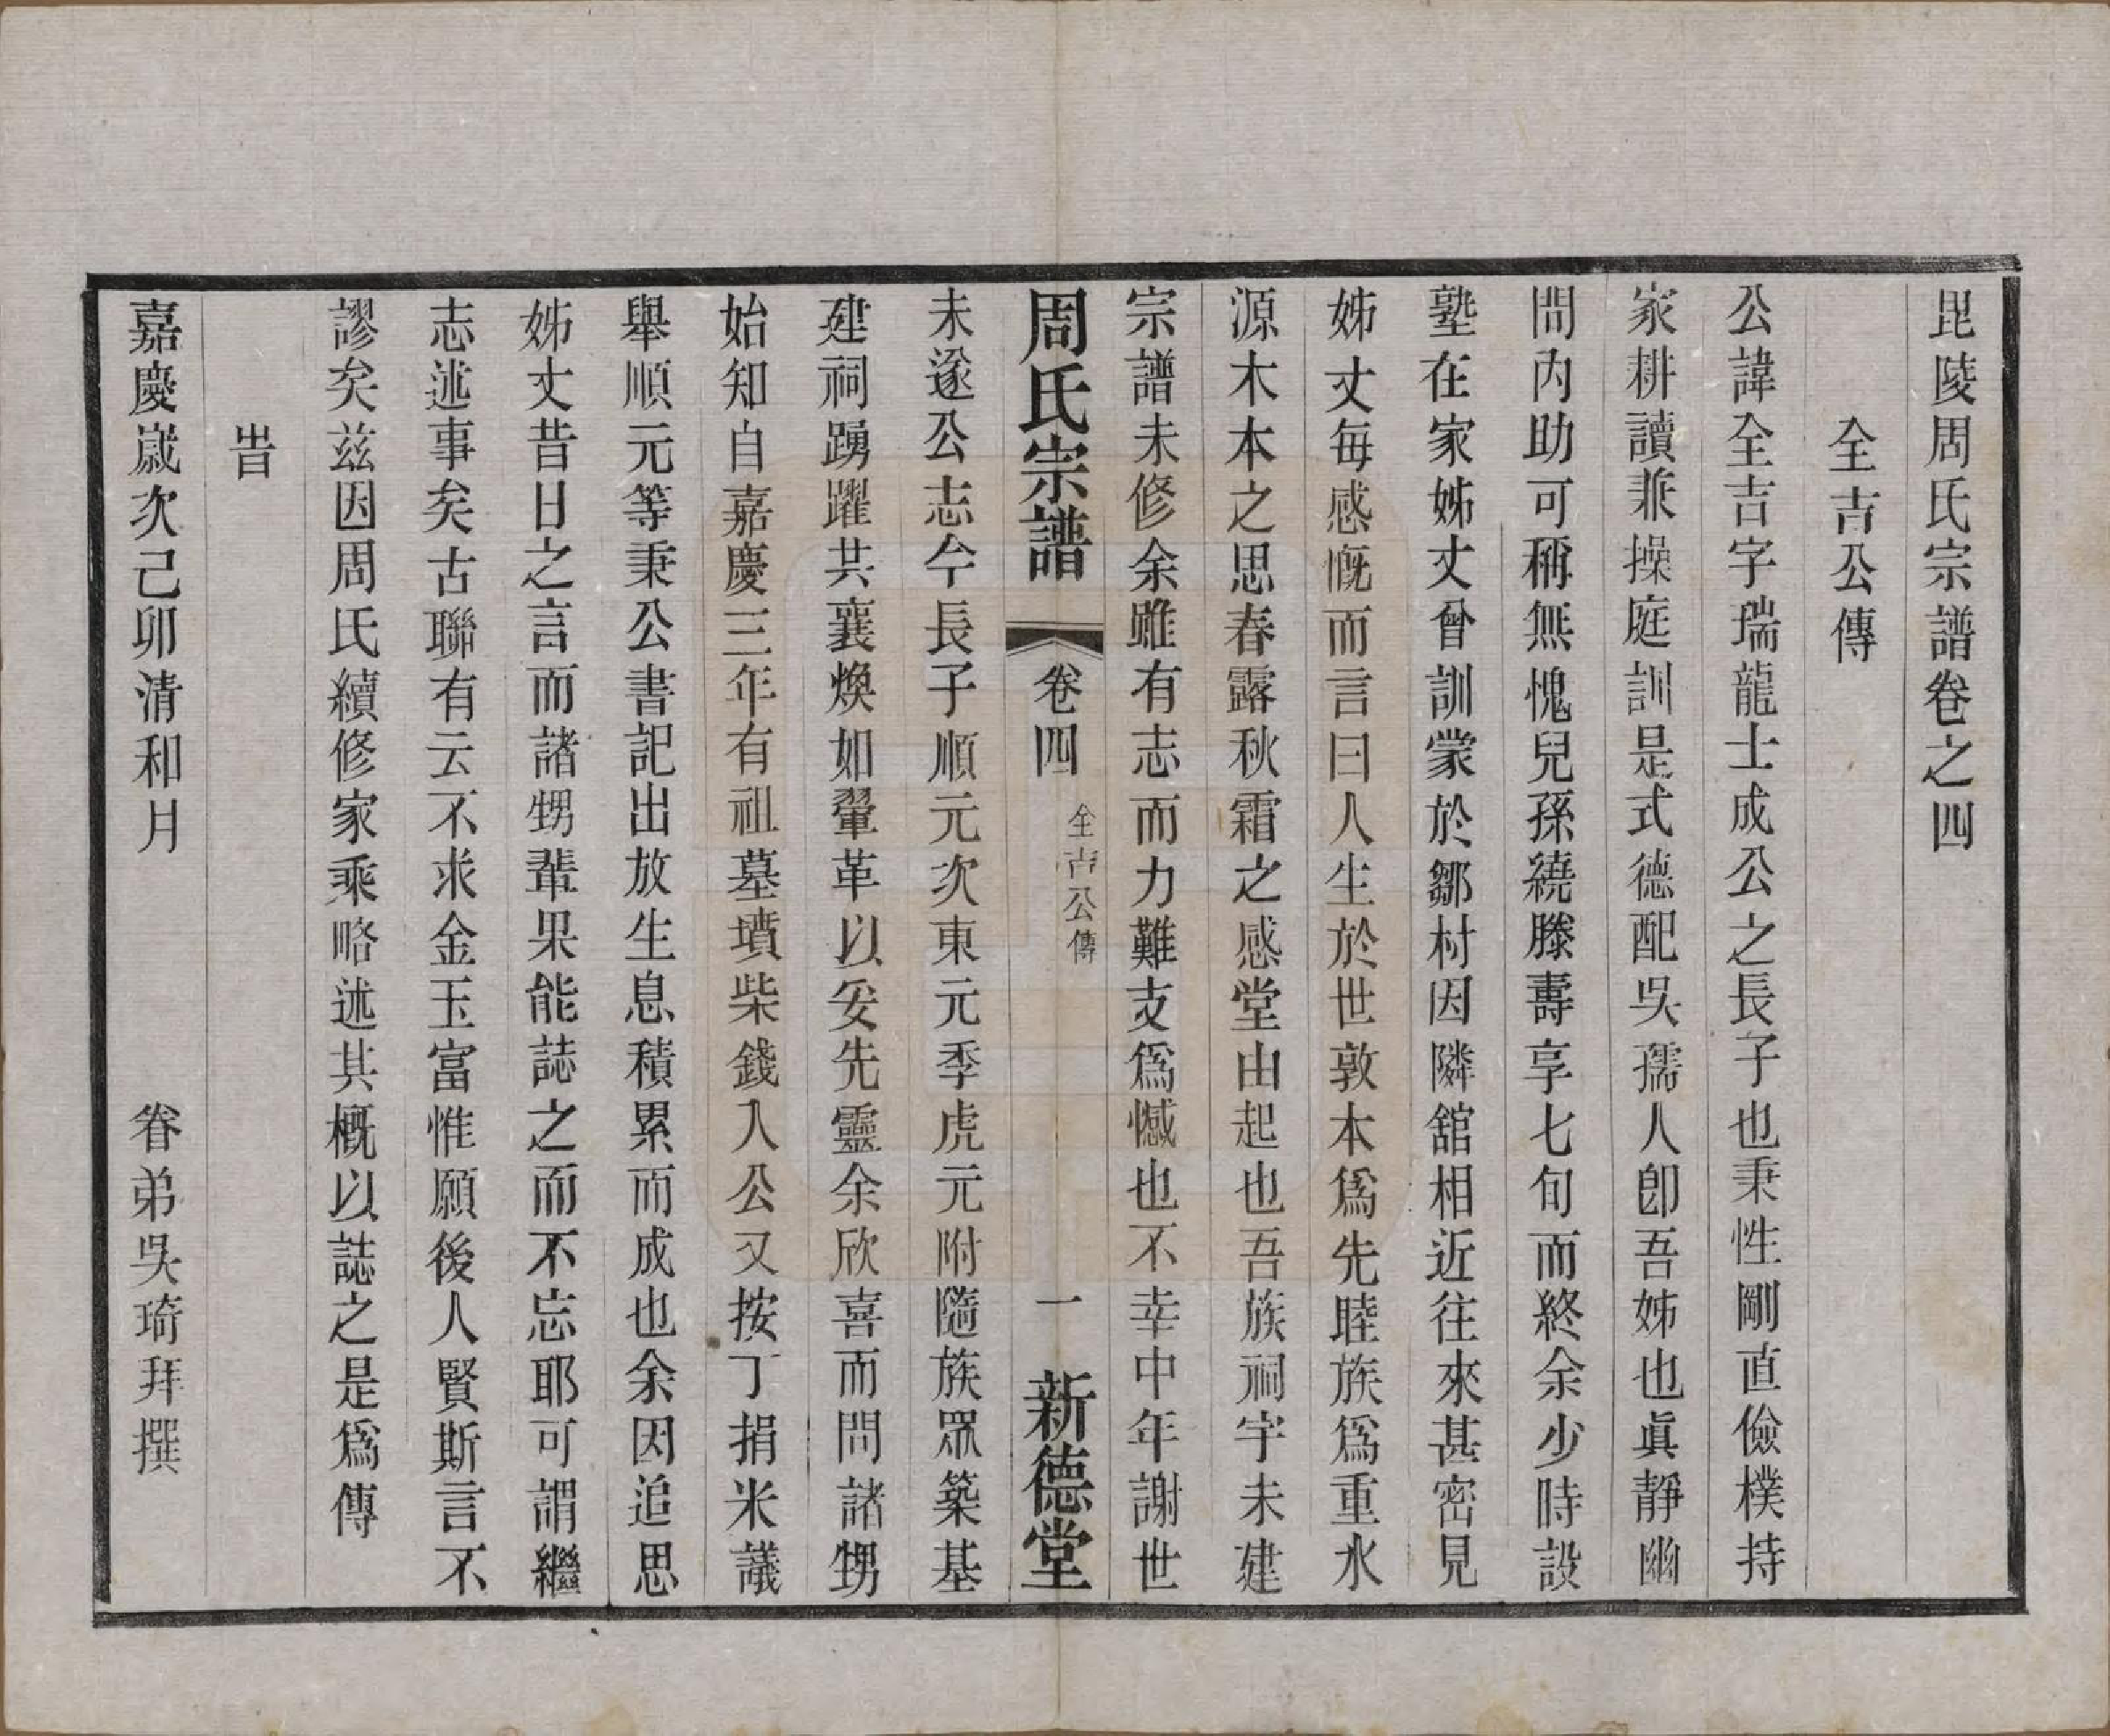 毘陵周氏宗譜卷之四
全吉公傳
公諱全吉字瑞龍士成公之長子也秉性剛直儉樸持
家耕讀兼操庭訓是式德配吳孺人卽吾姊也眞靜幽
閒內助可稱無愧兒孫繞膝壽享七旬而終余少時設
塾在家姊丈曾訓蒙於鄒村因隣舘相近往來甚密見
姊丈每感慨而言曰人生於世敦本爲先睦族爲重水
源木本之思春露秋霜之感堂由起也吾族祠宇未建
宗譜未修余雖有志而力難支爲憾也不幸中年謝世
周氏宗譜 卷四 全吉公傳 一 新德堂
未遂公志今長子順元次東元季虎元附隨族眾築基
建祠踴躍共襄煥如翬革以妥先靈余欣喜而問諸甥
始知自嘉慶三年有祖墓墳柴錢入公又按丁捐米議
舉順元等秉公書記出放生息積累而成也余因追思
姊丈昔日之言而諸甥輩果能誌之而不忘耶可謂繼
志述事矣古聯有云不求金玉富惟願後人賢斯言不
謬矣茲因周氏續修家乘略述其概以誌之是爲傳
旹
嘉慶歲次己卯清和月 眷弟吳琦拜撰